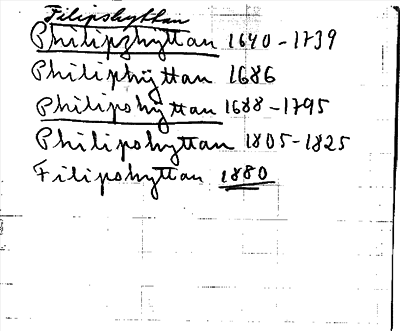 Filipshyttan
Philipzhyttan 1640-1739
Philiphÿttan 1686
Philipshÿttan 1688-1795
Philipshyttan 1805-1825
Filipshyttan 1880